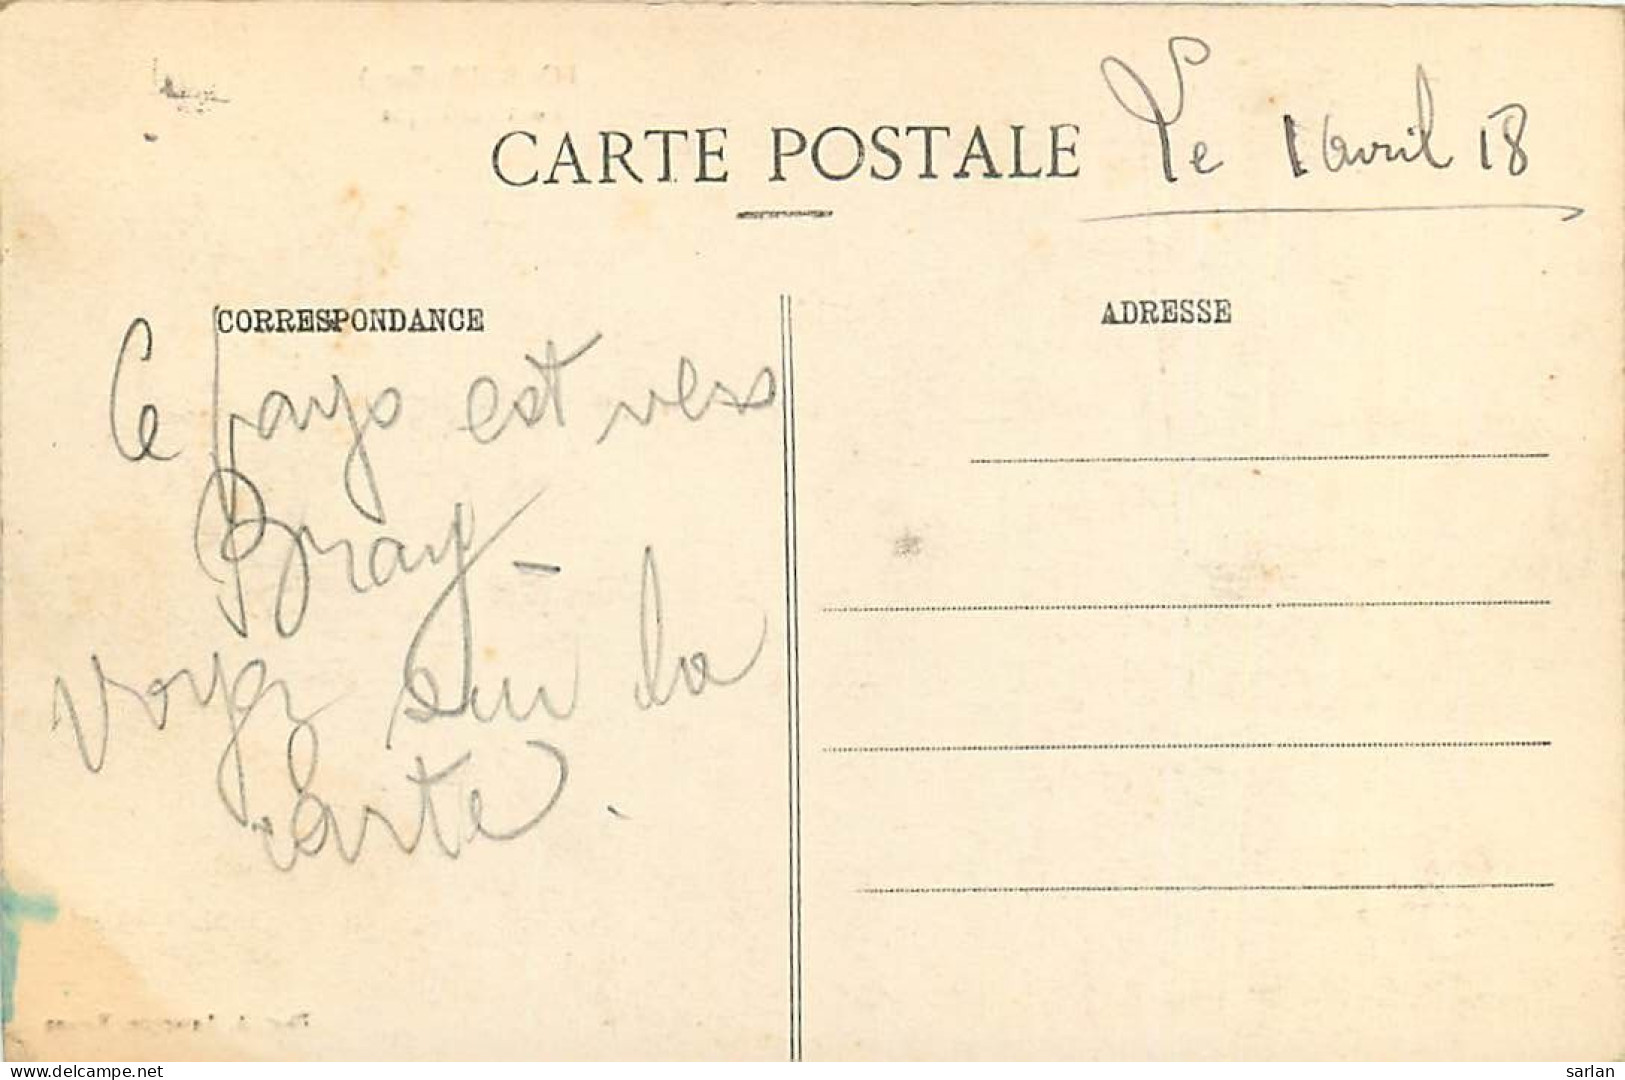 CARTE POSTALE
Le 1 avril 18
CORRESPONDANCE
ADRESSE
Ce pays est vers
Bray -
Voyez sur la
carte.
sarlan
delcampe.net